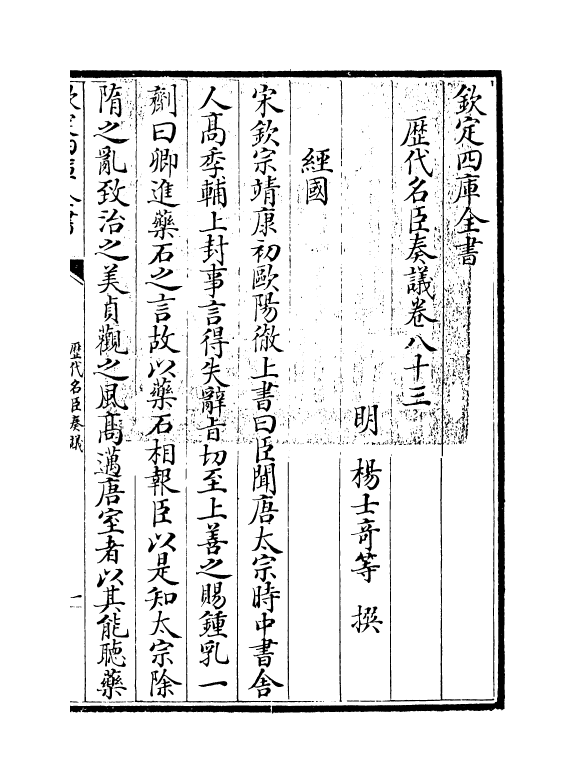 欽定四庫全書
歴代名臣奏議卷八十三
明 楊士竒等 撰
經國
宋欽宗靖康初歐陽徹上書曰臣聞唐太宗時中書舎
人髙季輔上封事言得失辭㫖切至上善之賜鍾乳一
劑曰卿進藥石之言故以藥石相報臣以是知太宗除
隋之亂致治之美貞觀之風髙邁唐室者以其能聴藥
欽定四庫全書
歴代名臣奏議
一